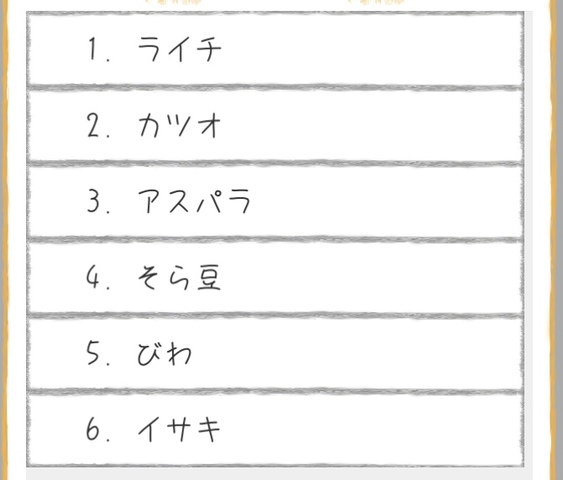 1. ライチ
2. カツオ
3. アスパラ
4. そら豆
5. びわ
6. イサキ